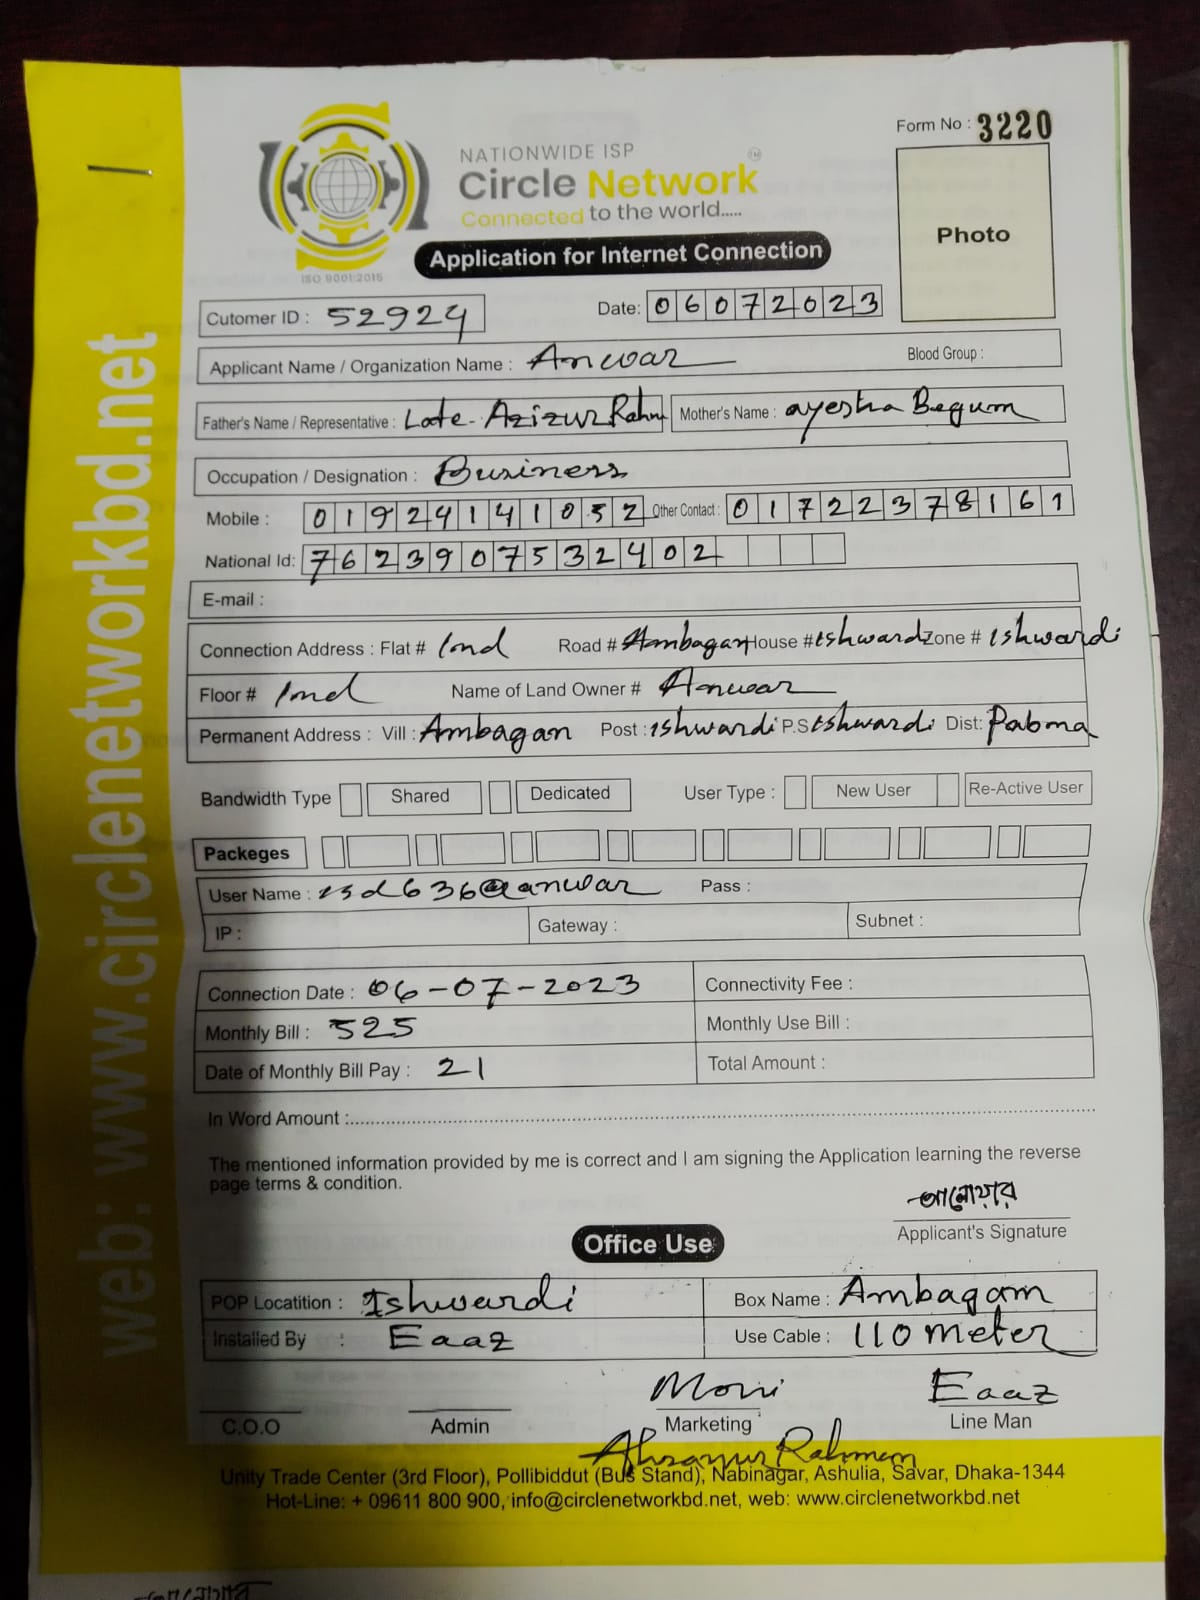 Form No : 3220
NATIONWIDE ISP
Circle Network TM
Connected to the world.....
ISO 9001:2015
Photo
Application for Internet Connection
Cutomer ID : 52924 Date: 06072023
Applicant Name / Organization Name : Anwar Blood Group :
Father's Name / Representative : Late. Azizur Rahm Mother's Name : ayesha Begum
Occupation / Designation : Business
Mobile : 01924141052 Other Contact : 01722378161
National Id: 7623907532402
E-mail :
Connection Address : Flat # 1nd Road # Ambagan House # Eshwardi Zone # Ishwardi
Floor # 1nd Name of Land Owner # Anwar
Permanent Address : Vill : Ambagan Post : Ishwardi P.S Eshwardi Dist: Pabna
Bandwidth Type Shared Dedicated User Type : New User Re-Active User
Packeges
User Name : isd636@anwar Pass :
IP : Gateway : Subnet :
Connection Date : 06-07-2023 Connectivity Fee :
Monthly Bill : 525 Monthly Use Bill :
Date of Monthly Bill Pay : 21 Total Amount :
In Word Amount :
The mentioned information provided by me is correct and I am signing the Application learning the reverse
page terms & condition.
আনোয়ার
Applicant's Signature
Office Use
POP Locatition : Ishwardi Box Name : Ambagam
Installed By : Eaaz Use Cable : 110 meter
Moni Eaaz
C.O.O Admin Marketing Line Man
Rahman
Unity Trade Center (3rd Floor), Pollibiddut (Bus Stand), Nabinagar, Ashulia, Savar, Dhaka-1344
Hot-Line: + 09611 800 900, info@circlenetworkbd.net, web: www.circlenetworkbd.net
web: www.circlenetworkbd.net